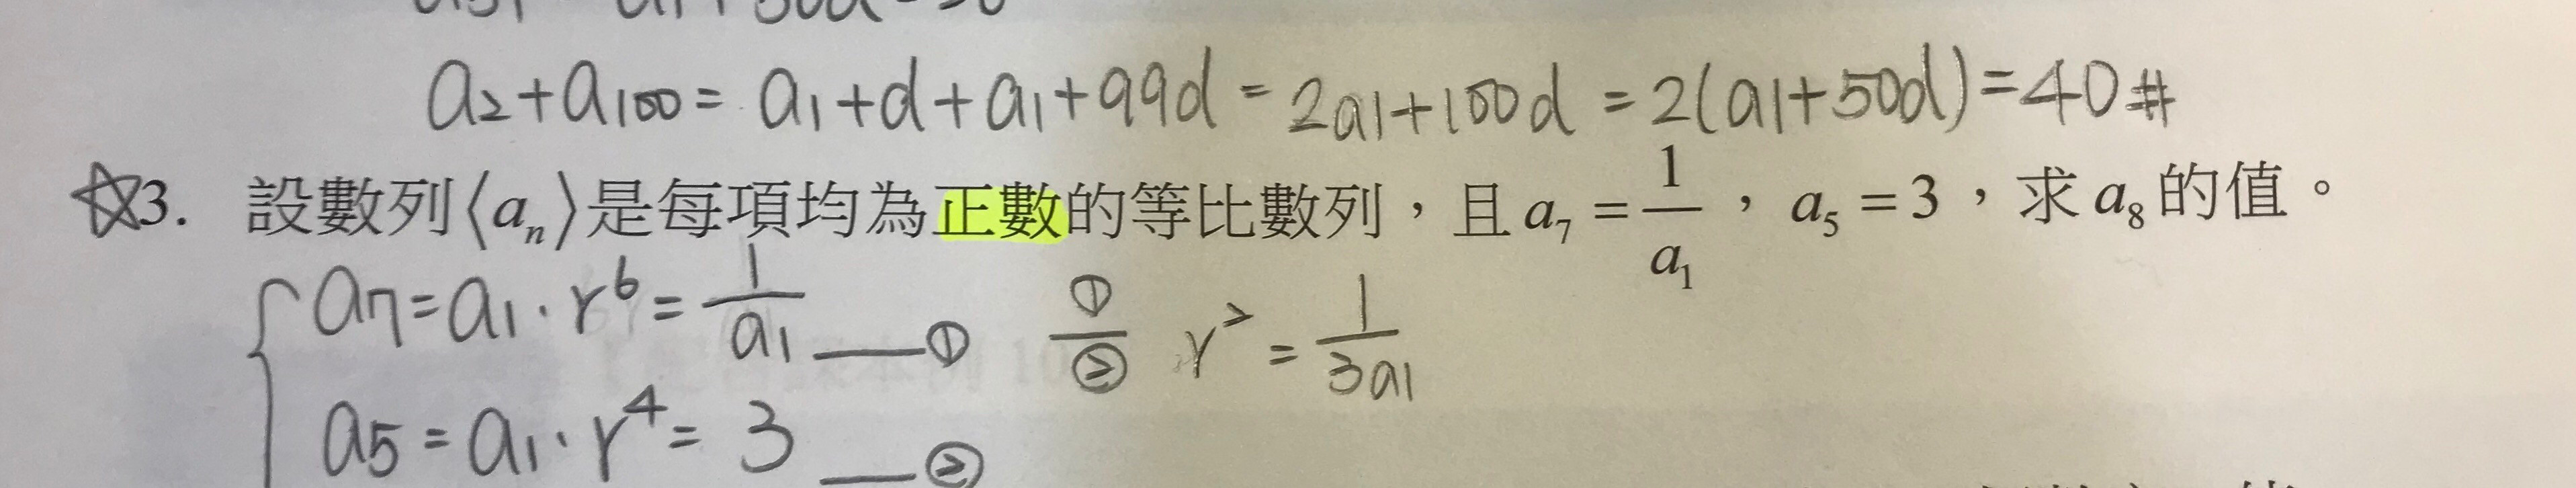 a₂+a₁₀₀=a₁+d+a₁+99d=2a₁+100d=2(a₁+50d)=40#
☆3. 設數列⟨aₙ⟩是每項均為正數的等比數列，且a₇=1/a₁，a₅=3，求a₈的值。
a₇=a₁·r⁶=1/a₁ —① ①/② r²=1/3a₁
a₅=a₁·r⁴=3 —②